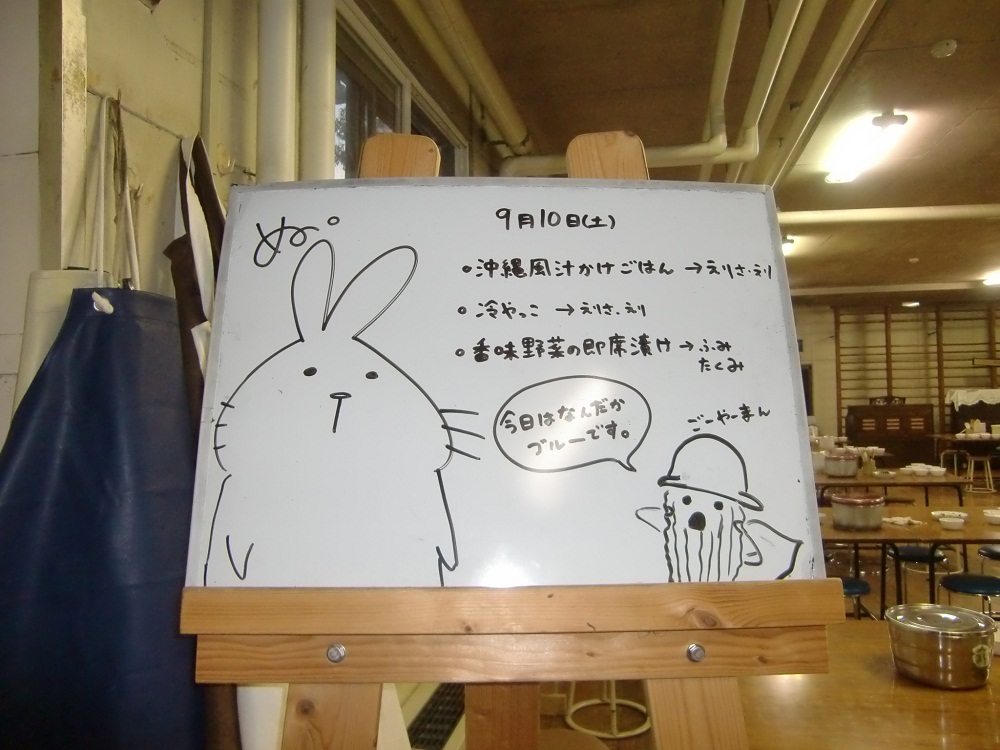 ぬ。
9月10日(土)
•沖縄風汁かけごはん →えりさ.えり
•冷やっこ →えりさ.えり
•香味野菜の即席漬け →ふみ
たくみ
今日はなんだか
ブルーです。
ごーやーまん